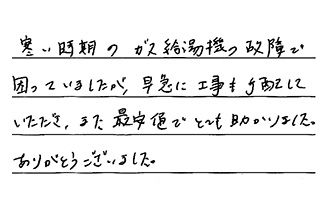 寒い時期のガス給湯機の故障で
困っていましたが、早急に工事も手配して
いただき、また最安値でとても助かりました。
ありがとうございました。